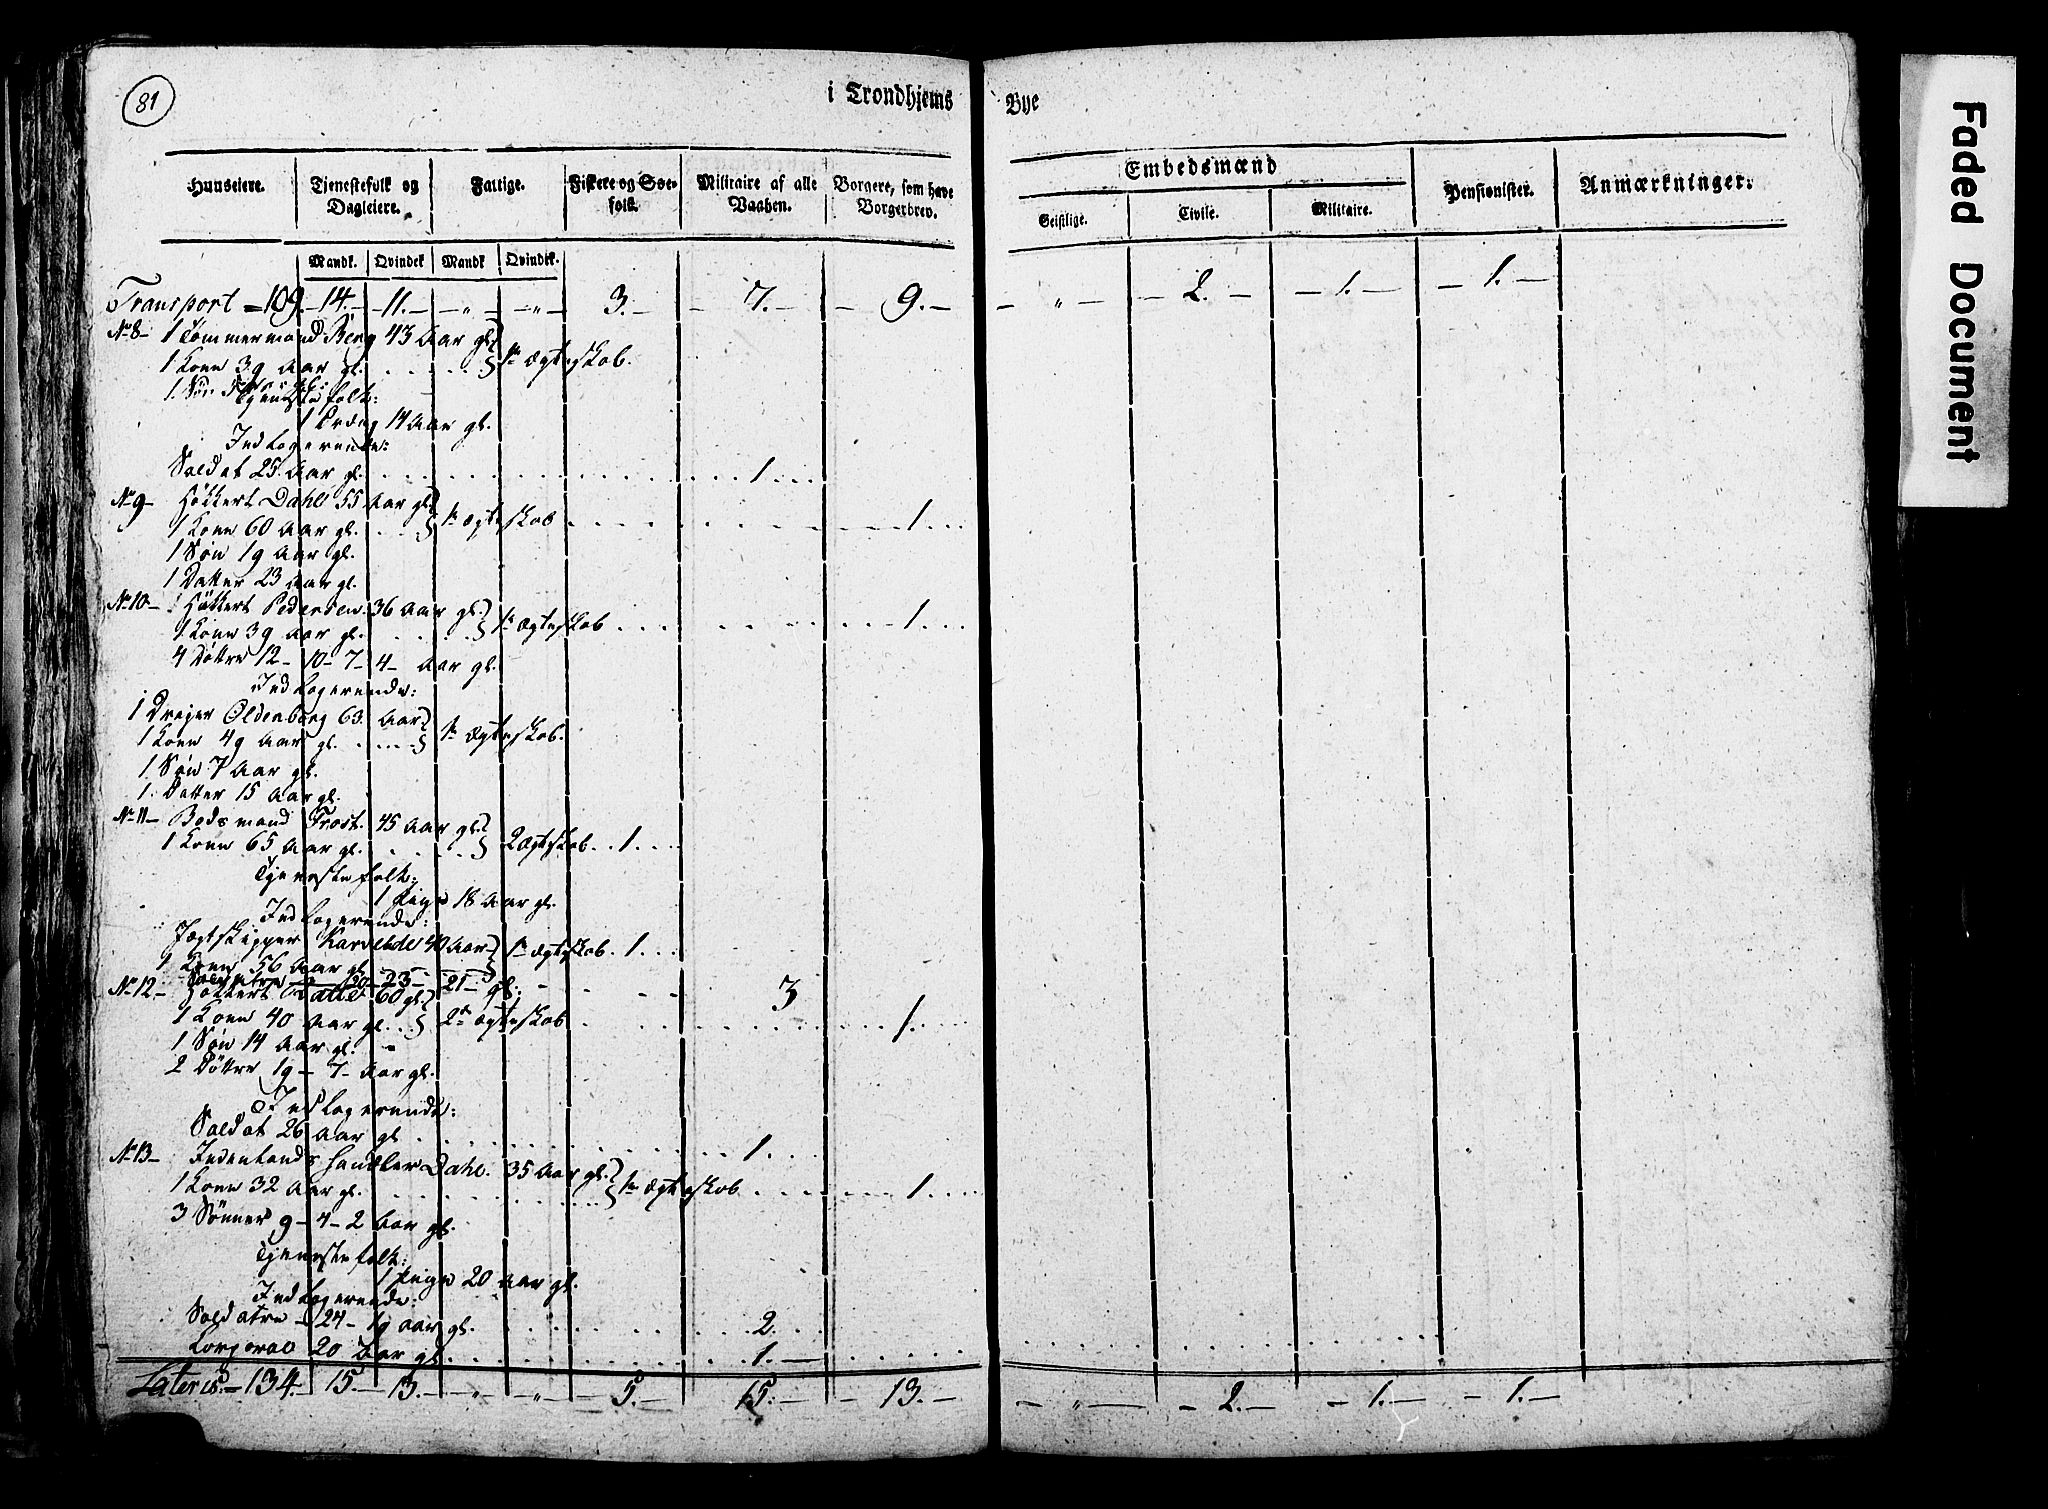 81
i Trondhjems Bye
Huuseiere. Tjenestefolk og Dagleiere. Fattige. Fiskere og Søefolk. Militaire af alle Vaaben. Borgere, som have Borgerbrev. Embedsmænd Pensionister. Anmærkninger.
Geistlige. Civile. Militaire.
Mandk. Qvindek Mandk Qvindek.
Transport = 109. - 14. - 11. - " - " - 3. - 7. - 9. - " - 2. - 1. - 1. -
No 8 - 1 Tømmermand Berg 43 Aar gl.
1 Kone 39 Aar gl. . . . . . 1te Ægteskab.
1 Søn
Tjenestefolk:
1 Dreng 14 Aar gl.
Indlogerende:
Soldat 25 Aar gl. . . . 1. . .
No 9 - Høkkert Dahl 55 Aar gl.
1 Kone 60 Aar gl. . . . 1te Ægteskab . . . 1. . .
1 Søn 19 Aar gl.
1 Datter 23 Aar gl.
No 10 - 1 Høkkert Pedersen 36 Aar gl.
1 Kone 39 Aar gl. . . . 1te Ægteskab . . . 1. . .
4 Døttre 12 - 10 - 7 - 4 - Aar gl.
Indlogerende:
1 Drejer Oldenborg 63 Aar
1 Kone 49 Aar gl. . . . 1te Ægteskab.
1 Søn 7 Aar gl.
1 Datter 15 Aar gl.
No 11 - Bodsmand Frost. 45 Aar gl.
1 Kone 65 Aar gl. . . . 2 Ægteskab . . 1. . .
Tjenestefolk:
1 Pige 18 Aar gl.
Indlogerende:
Jægtskipper 40 Aar 1te Ægteskab. 1. . .
1 Kone 56 Aar gl.
Soldatere 20 - 23 - 21 - gl. - - - 3
No 12 - Høkkert 60 gl.
1 Kone 40 Aar gl. . . 2det Ægteskab . . . 1. . .
1 Søn 14 Aar gl. -
2 Døttre 19 - 7 - Aar gl.
Indlogerende:
Soldat 26 Aar gl. . . . 1. . .
No 13 - Indenlands Handler Dahl. 35 Aar gl.
1 Kone 32 Aar gl. . . . 1te Ægteskab . . . 1. . .
3 Sønner 9 - 4 - 2 Aar gl.
Tjenestefolk:
1 Pige 20 Aar gl.
Indlogerende:
Soldatre - 24 - 19 Aar gl. . . . 2. . .
Corporal 20 Aar gl. . . . 1. -
Lateris. - 134. - 15. - 13. - " - " - 5. - 15. - 13. - " - 2. - 1. - 1. -
Faded Document